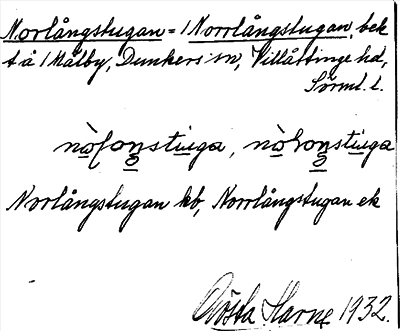 Norlångstugan = 1 Norrlångstugan bek
t å 1 Målby, Dunkers sn, Villåttinge hd,
Sörml. l.
nòlonstuga, nòronstuga
Norlångstugan kb, Norrlångstugan ek
Gösta Harne 1932.